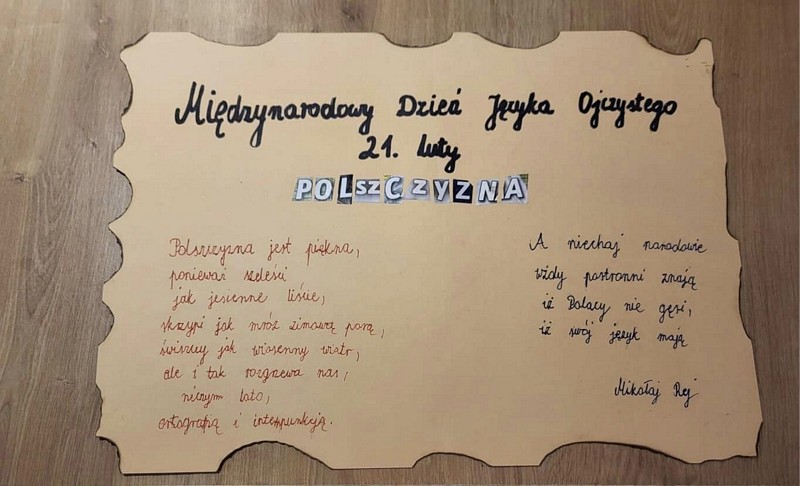 Międzynarodowy Dzień Języka Ojczystego
21. luty
POLSZCZYZNA
Polszczyzna jest piękna,
ponieważ szeleści
jak jesienne liście,
skrzypi jak mróz zimową porą,
świszczy jak wiosenny wiatr,
ale i tak rozgrzewa nas,
niczym lato,
ortografią i interpunkcją.
A niechaj narodowie
wżdy postronni znają
iż Polacy nie gęsi,
iż swój język mają
Mikołaj Rej